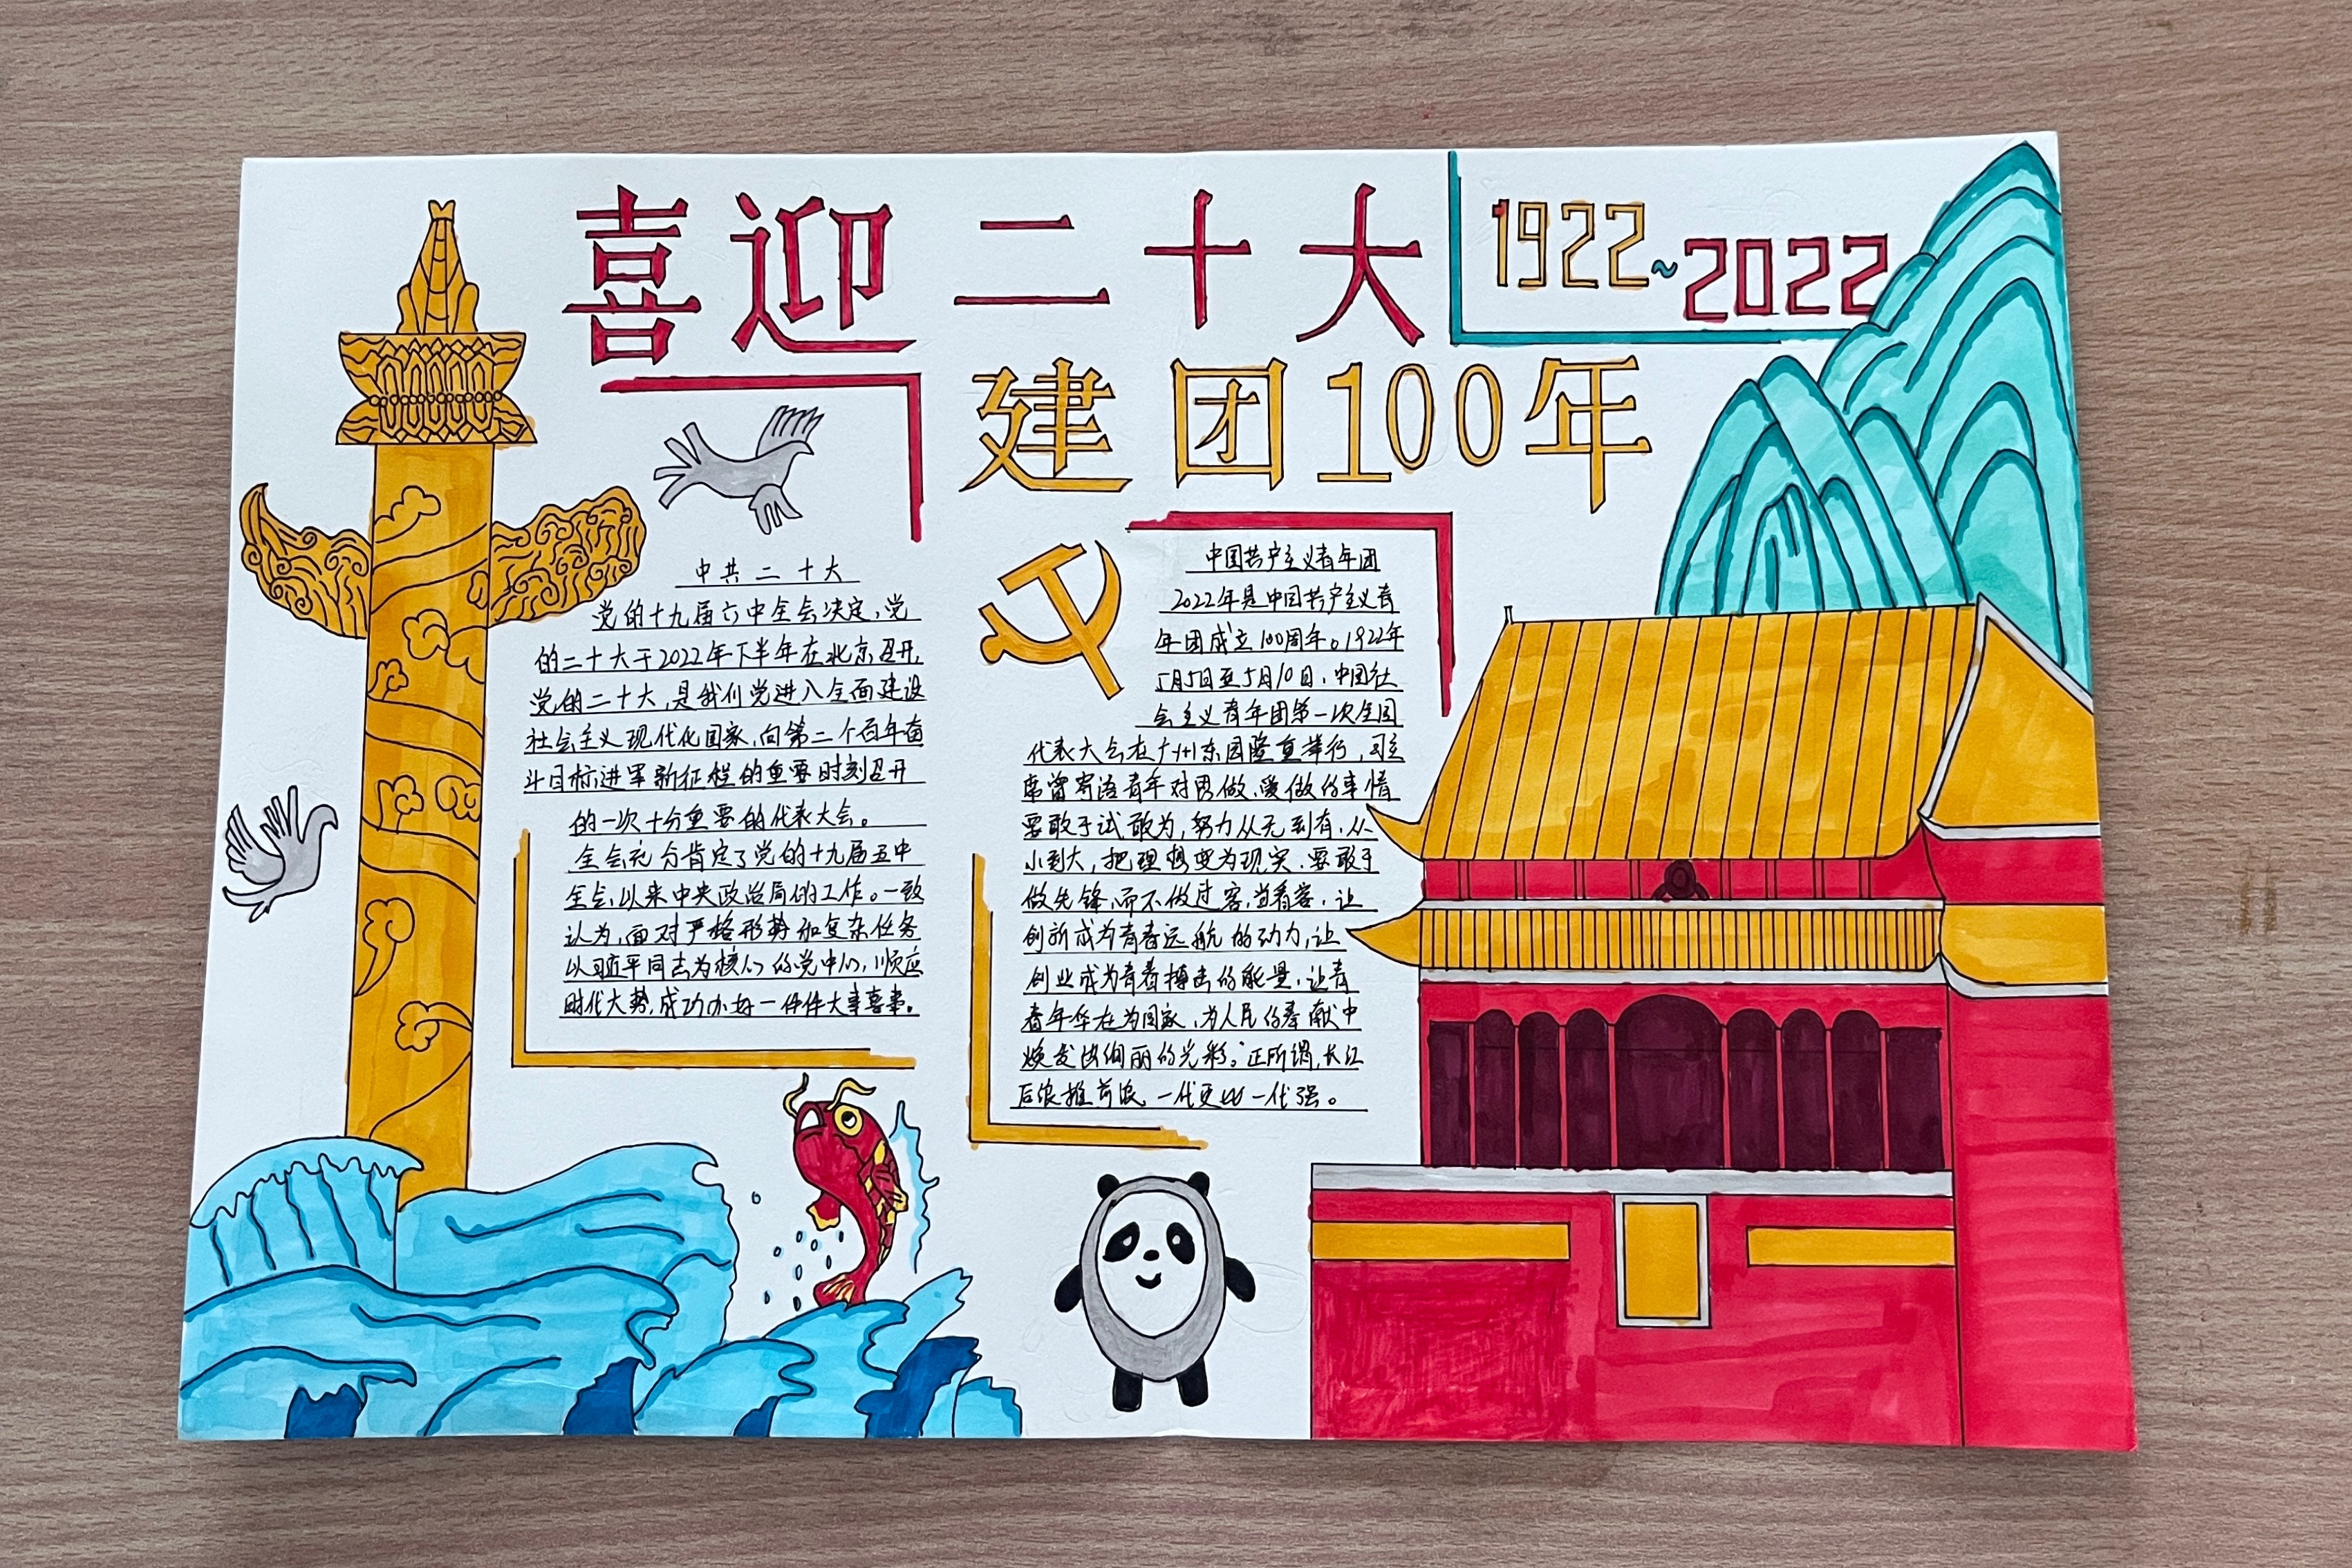 喜迎二十大
1922~2022
建团100年
中共二十大
党的十九届六中全会决定,党
的二十大于2022年下半年在北京召开,
党的二十大,是我们党进入全面建设
社会主义现代化国家,向第二个百年奋
斗目标进军新征程的重要时刻召开
的一次十分重要的代表大会。
全会充分肯定了党的十九届五中
全会以来中央政治局的工作。一致
认为,面对严格形势和复杂任务
以习近平同志为核心的党中央,顺应
时代大势,成功办好一件件大事喜事。
中国共产主义青年团
2022年是中国共产主义青
年团成立100周年。1922年
5月5日至5月10日,中国社
会主义青年团第一次全国
代表大会在广州东园隆重举行,习主
席曾寄语青年对男做、爱做的事情
要敢于试敢为,努力从无到有,从
小到大,把理想变为现实.要敢于
做先锋,而不做过客,当看客,让
创新成为青春远航的动力,让
创业成为青春搏击的能量,让青
春年华在为国家,为人民的奉献中
焕发出绚丽的光彩。"正所谓,长江
后浪推前浪,一代更比一代强。